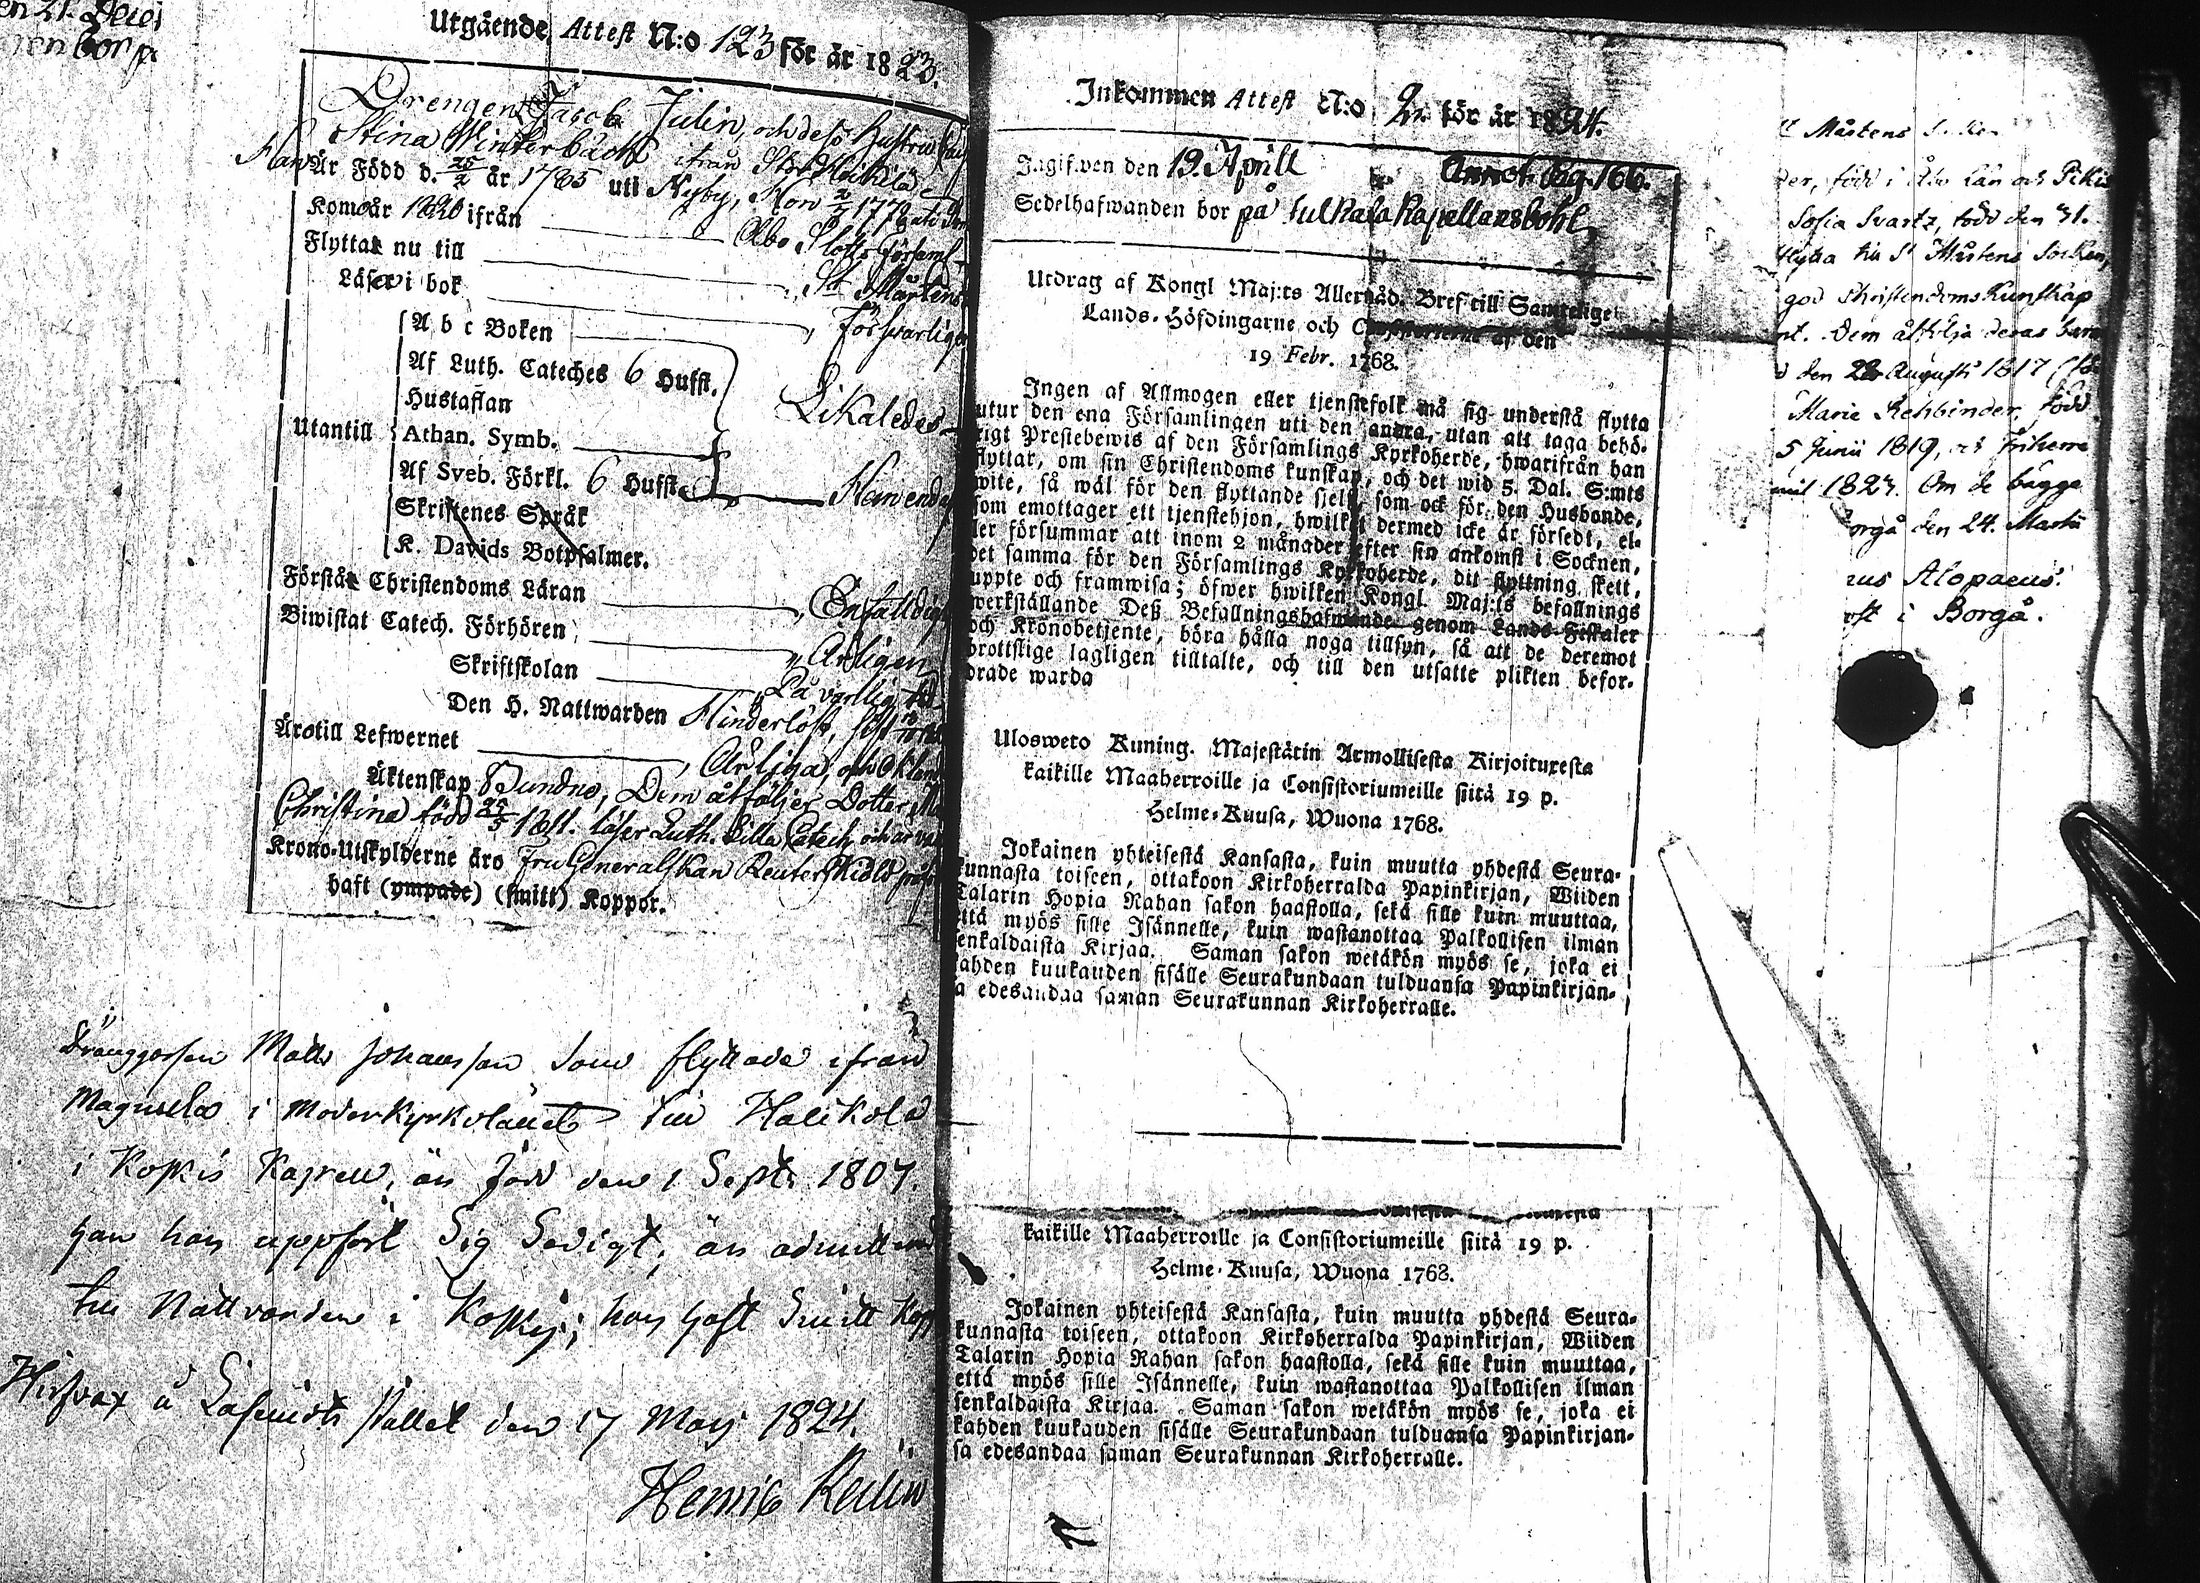 Utgående Attest N:o 123 för år 1823.
Drengen Jacob Julin, och dess hustru
Stina Winterbäck ifrån Stor Heikilä
Han Är Född d. 25/2 år 1785 uti Nyby, Hon 2/2 1770
Kom år 1820 ifrån Åbo Slotts Församl
Flyttar nu till St Mårtens
Läser i bok Försvarligen
A b c Boken
Af Luth. Cateches 6 Hufst.
Hustaflan Likaledes
Utantill Athan. Symb.
Af Sveb. Förkl. 6 Hufst. Han endast
Skriftenes Språk
K. Davids Botpsalmer.
Förstår Christendoms Läran Enfaldigt
Biwistat Catech. Förhören Årligen
Skriftskolan
Den H. Nattwarden Hinderlöst,
Äro till Lefwernet Ärliga, och
Äktenskap Bundne, Dem åtföljer Dotter
Christina född 25/5 1811. läser Luth. Lilla Catech. och är
Krono-Utskylderne äro Fru Generalskan Reuterskiöld
haft (ympade) (smitt) Koppor.
Drenggossen Matts Johansson som flyttade ifrån
i Moderkyrkolänet till Halikola
i Koskis Kapell, är född den 1 Sept. 1807.
han har uppfört Sig Sedigt, är admitterad
till Nattvarden i Koskis; har haft Smitt Kopp
den 17 Maij 1824.
Henric
Inkommen Attest N:o 2. för år 1824.
Ingifwen den 19. Aprill Annot. pag. 166.
Sedelhafwanden bor på Tulkala Kapellansbohl
Utdrag af Kongl Maj:ts Allernåd. Bref till Samtelige
Lands-Höfdingarne och Consistorierne af den
19 Febr. 1768.
Ingen af Allmogen eller tjenstefolk må sig understå flytta
utur den ena Församlingen uti den andra, utan att taga behö-
rigt Prestebewis af den Församlings Kyrkoherde, hwarifrån han
flyttar, om sin Christendoms kunskap, och det wid 5. Dal. S:mts
wite, så wäl för den flyttande sielf, som ock för den Husbonde,
som emottager ett tjenstehjon, hwilket dermed icke är försedt, el-
ler försummar att inom 2 månader efter sin ankomst i Socknen,
det samma för den Församlings Kyrkoherde, dit flyttning skett,
uppte och framwisa; öfwer hwilken Kongl. Maj:ts befallnings
werkställande Deß Befallningshafwande genom Lands Fiskaler
och Kronobetjente, böra hålla noga tillsyn, så att de deremot
brottslige lagligen tilltalte, och till den utsatte plikten befor-
drade warda
Ulosweto Kuning. Majestätin Armollisesta Kirjoituxesta
kaikille Maaherroille ja Consistoriumeille siitä 19 p.
Helme-Kuusa, Wuona 1768.
Jokainen yhteisestä Kansasta, kuin muutta yhdestä Seura-
kunnasta toiseen, ottakoon Kirkoherralda Papinkirjan, Wiiden
Talarin Hopia Rahan sakon haastolla, sekä sille kuin muuttaa,
että myös sille Isännelle, kuin wastanottaa Palkollisen ilman
senkaldaista Kirjaa. Saman sakon wetäkön myös se, joka ei
kahden kuukauden sisälle Seurakundaan tulduansa Papinkirjan-
sa edesandaa saman Seurakunnan Kirkoherralle.
kaikille Maaherroille ja Consistoriumeille siitä 19 p.
Helme-Kuusa, Wuona 1768.
Jokainen yhteisestä Kansasta, kuin muutta yhdestä Seura-
kunnasta toiseen, ottakoon Kirkoherralda Papinkirjan, Wiiden
Talarin Hopia Rahan sakon haastolla, sekä sille kuin muuttaa,
että myös sille Isännelle, kuin wastanottaa Palkollisen ilman
senkaldaista Kirjaa. Saman sakon wetäkön myös se, joka ei
kahden kuukauden sisälle Seurakundaan tulduansa Papinkirjan-
sa edesandaa saman Seurakunnan Kirkoherralle.
t Mårtens Socken
der, född i Åbo Län och Pikis
Sofia Svartz, född den 31.
flytta till St Mårtens Socken,
god Christendoms Kunskap
nt. Dem åtfölja deras barn
d den 28 Augusti 1817
Marie Rehbinder, född
5 Junii 1819, och Friherre
1823. Om de bägge
orgå den 24. Martii
us Alopaeus.
ost i Borgå.